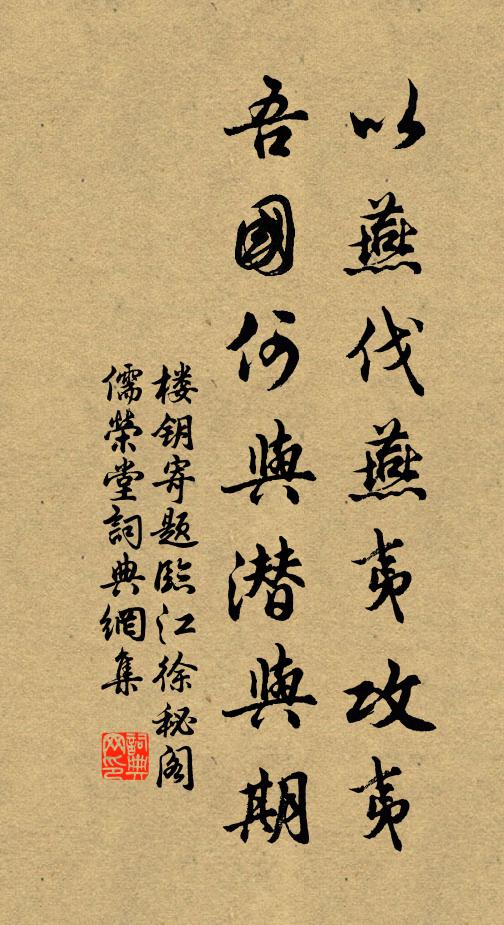 以燕伐燕夷攻夷
吾國何與潜與期
楼钥寄题臨江徐秘阁
儒榮堂詞典網集
詞典网印